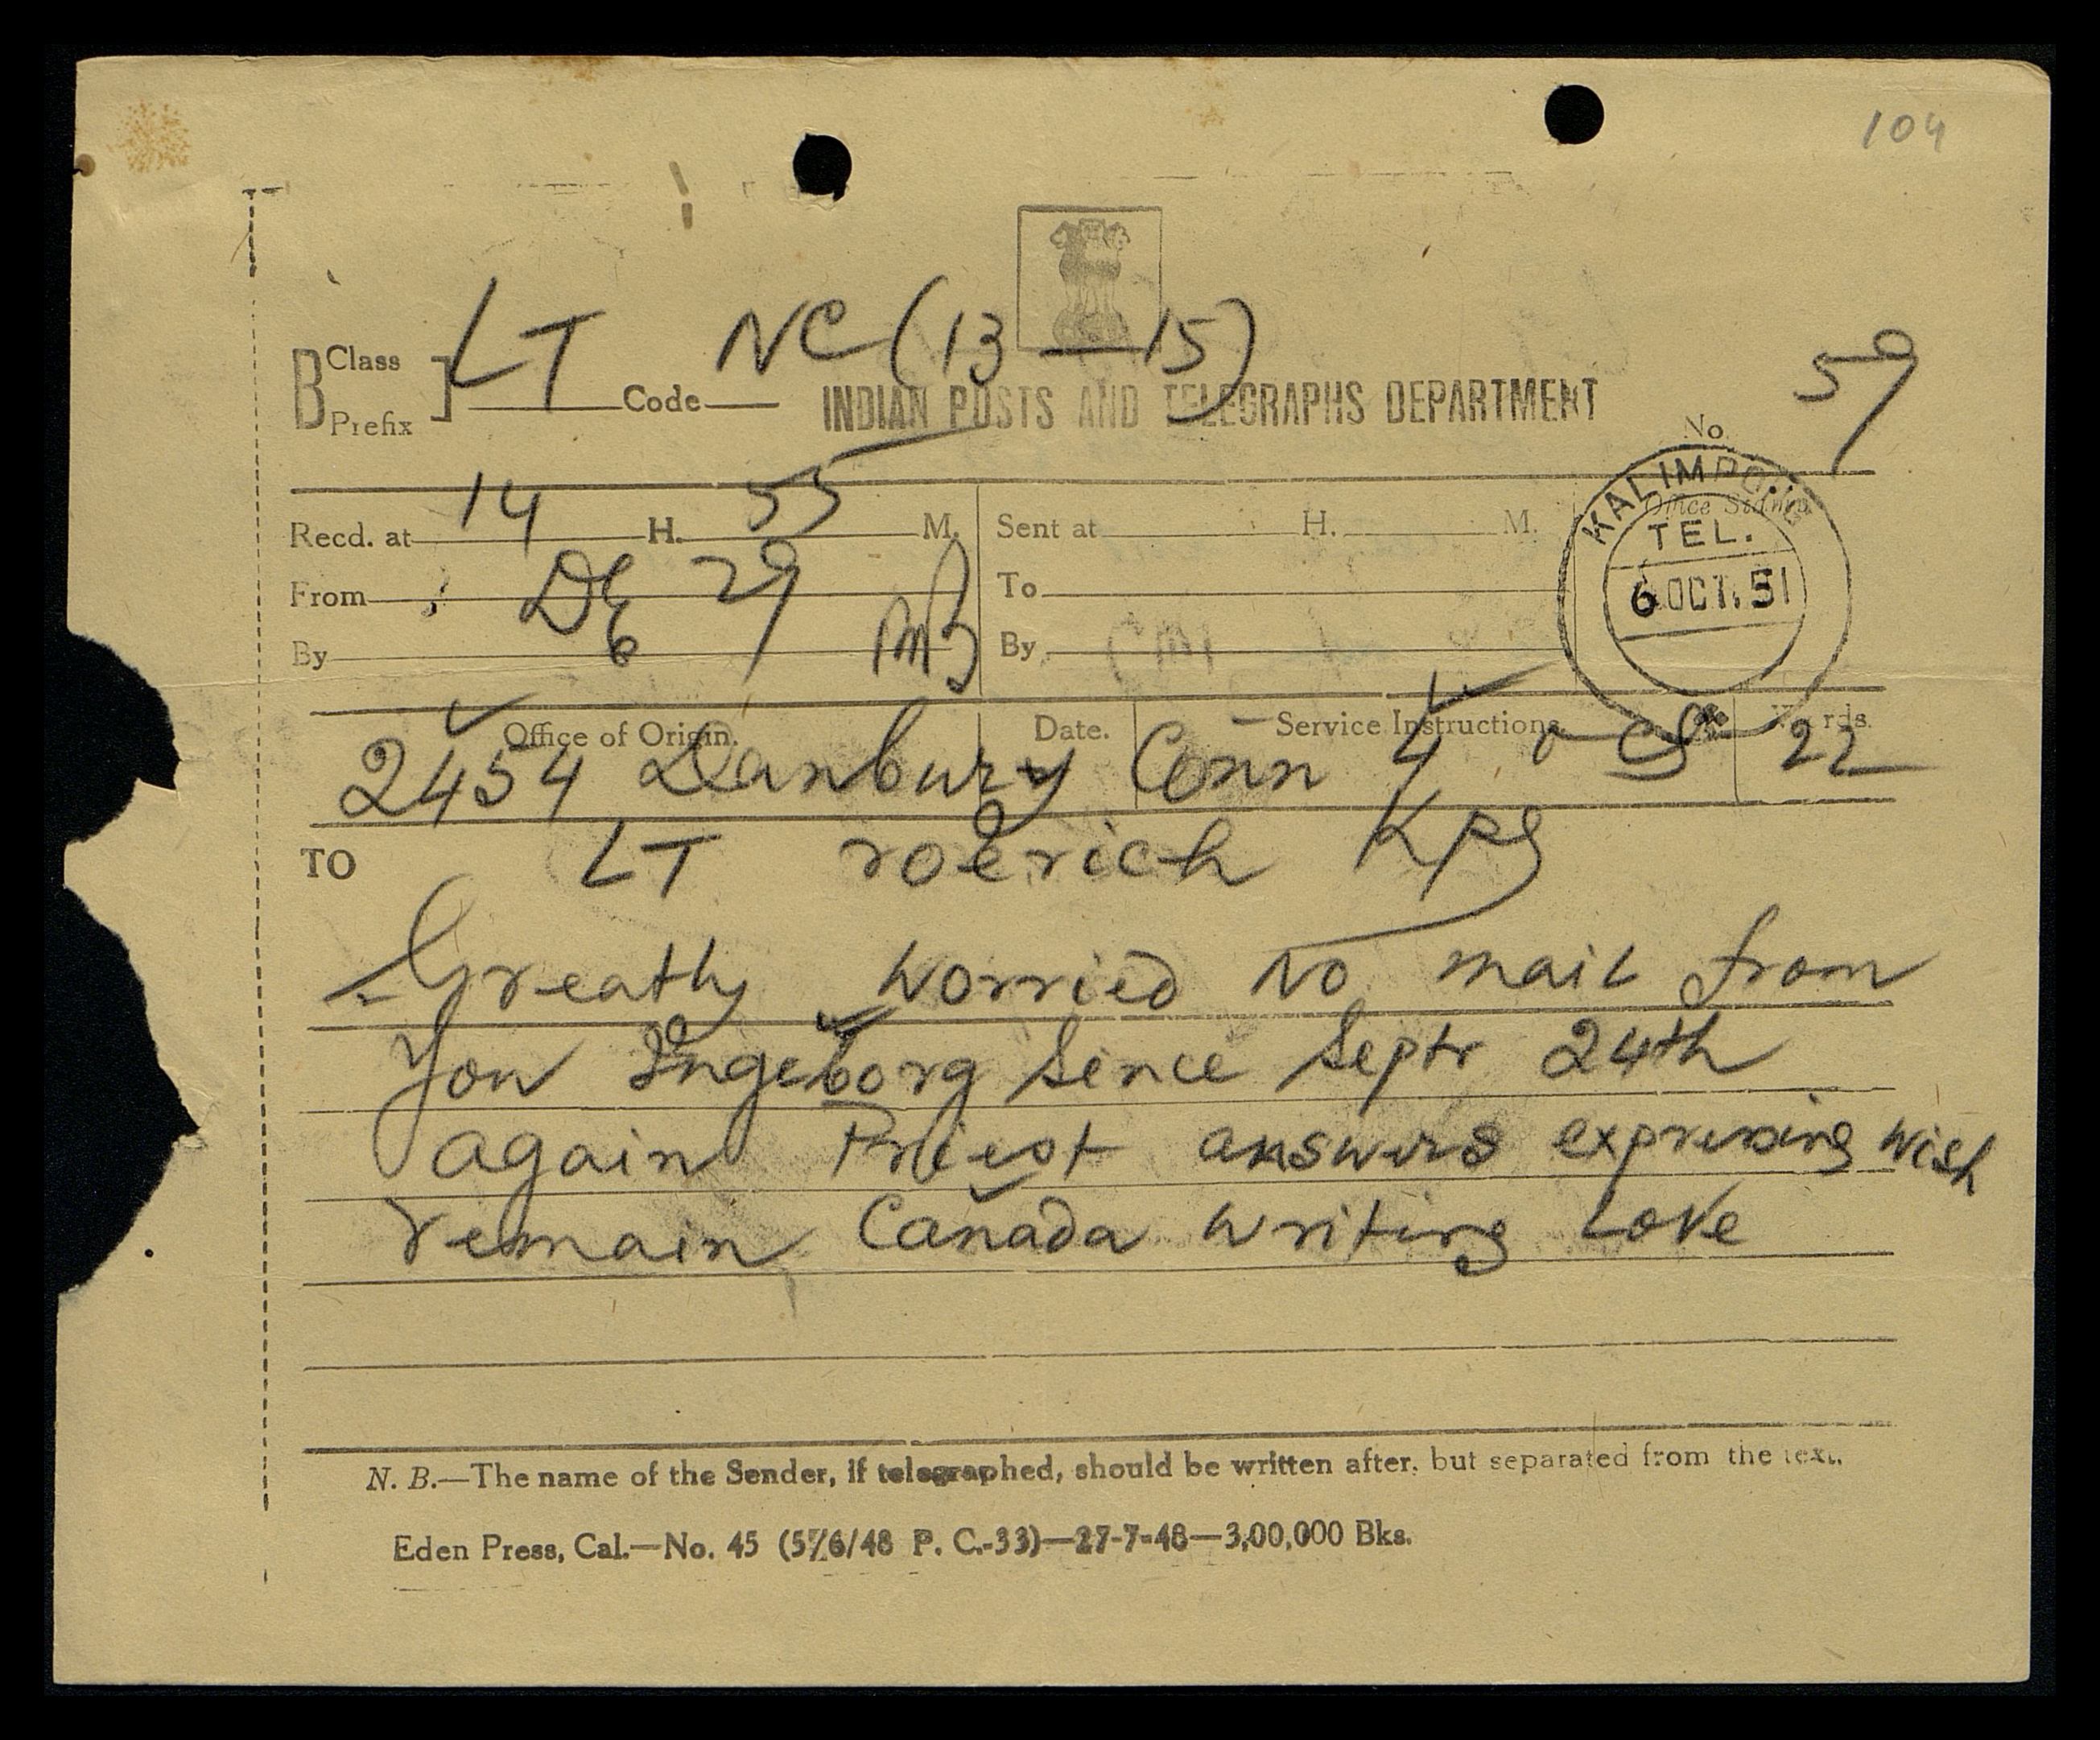 104
LT NC (13—15)
B Class Prefix ] Code
INDIAN POSTS AND TELEGRAPHS DEPARTMENT
No. 59
Recd. at 14 H. 55 M.
Sent at H. M.
Office Stamp
KALIMPONG
TEL.
6 OCT. 51
From DE 29
To
By
By
Office of Origin. Date. Service Instructions Words.
2454 Danbury Conn 4 22
TO LT roerich Kpg
Greatly worried No mail from
You Ingeborg Sence Septr 24th
again Priest answers expressing wish
remain Canada writing Love
N. B.—The name of the Sender, if telegraphed, should be written after, but separated from the text.
Eden Press, Cal.—No. 45 (57/6/48 P. C.-33)—27-7-48—3,00,000 Bks.